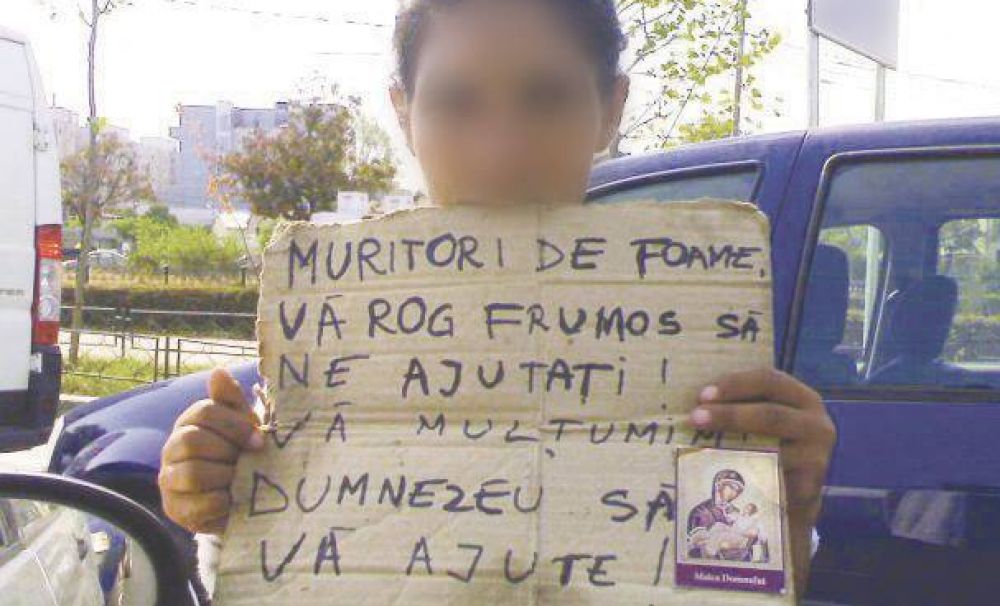 MURITORI DE FOAME,
VĂ ROG FRUMOS SĂ
NE AJUTAȚI !
VĂ MULȚUMIM!
DUMNEZEU SĂ
VĂ AJUTE !
Maica Domnului